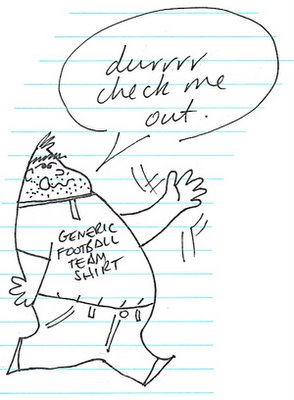 durrrr
check me
out.
GENERIC
FOOTBALL
TEAM
SHIRT